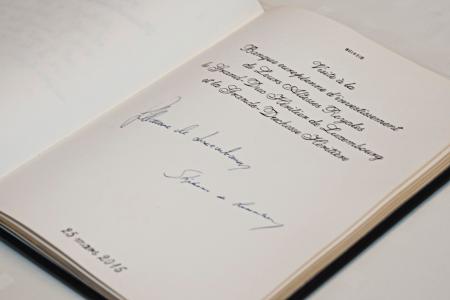 Visite à la
Banque européenne d'investissement
de Leurs Altesses Royales
le Grand-Duc Héritier de Luxembourg
et la Grande-Duchesse Héritière
Guillaume de Luxembourg
Stéphanie de Luxembourg
25 mars 2015